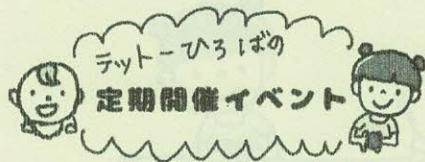 テットーひろばの
定期開催イベント